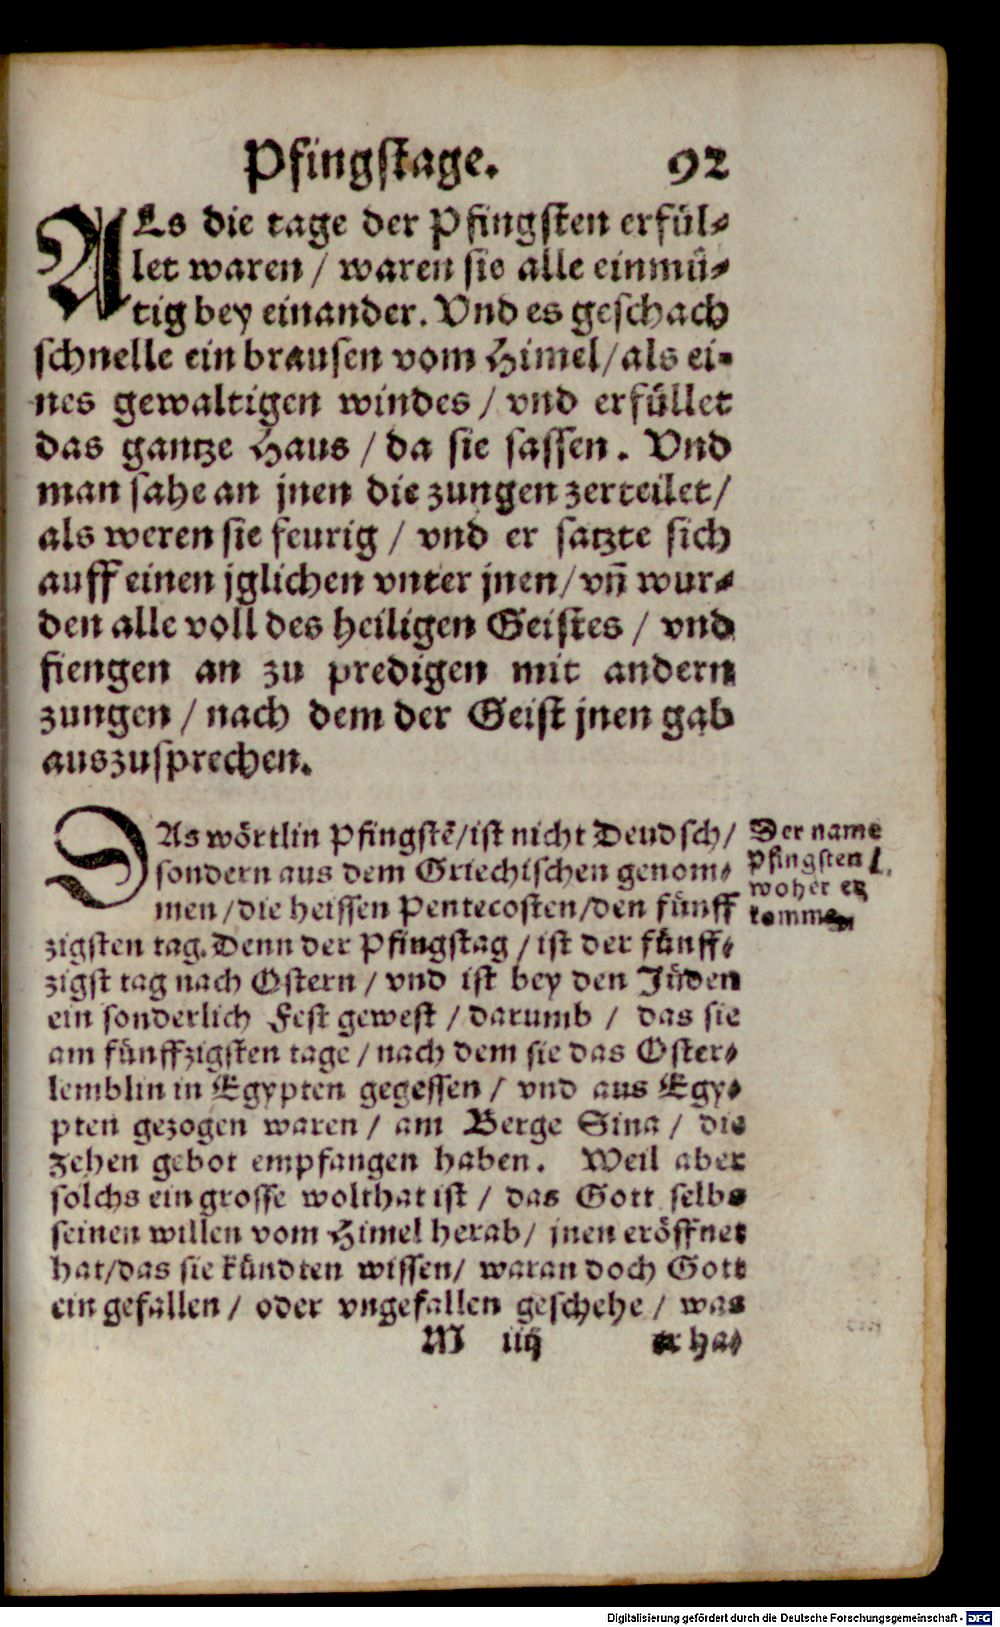 Pfingstage. 92
ALs die tage der Pfingsten erfül⸗
let waren / waren sie alle einmü⸗
tig bey einander. Vnd es geschach
schnelle ein brausen vom Himel / als ei⸗
nes gewaltigen windes / vnd erfüllet
das gantze Haus / da sie sassen. Vnd
man sahe an jnen die zungen zerteilet /
als weren sie feurig / vnd er satzte sich
auff einen jglichen vnter jnen / vñ wur⸗
den alle voll des heiligen Geistes / vnd
fiengen an zu predigen mit andern
zungen / nach dem der Geist jnen gab
auszusprechen.
DAs wörtlin Pfingstẽ / ist nicht Deudsch /
sondern aus dem Griechischen genom⸗
men / die heissen Pentecosten / den fünff
zigsten tag. Denn der Pfingstag / ist der fünff⸗
zigst tag nach Ostern / vnd ist bey den Jüden
ein sonderlich Fest gewest / darumb / das sie
am fünffzigsten tage / nach dem sie das Oster⸗
lemblin in Egypten gegessen / vnd aus Egy⸗
pten gezogen waren / am Berge Sina / die
zehen gebot empfangen haben. Weil aber
solchs ein grosse wolthat ist / das Gott selbs
seinen willen vom Himel herab / jnen eröffnet
hat / das sie kündten wissen / waran doch Gott
ein gefallen / oder vngefallen geschehe / was
M iiij er ha⸗
Der name
Pfingsten
woher er
komme.
Digitalisierung gefördert durch die Deutsche Forschungsgemeinschaft - DFG